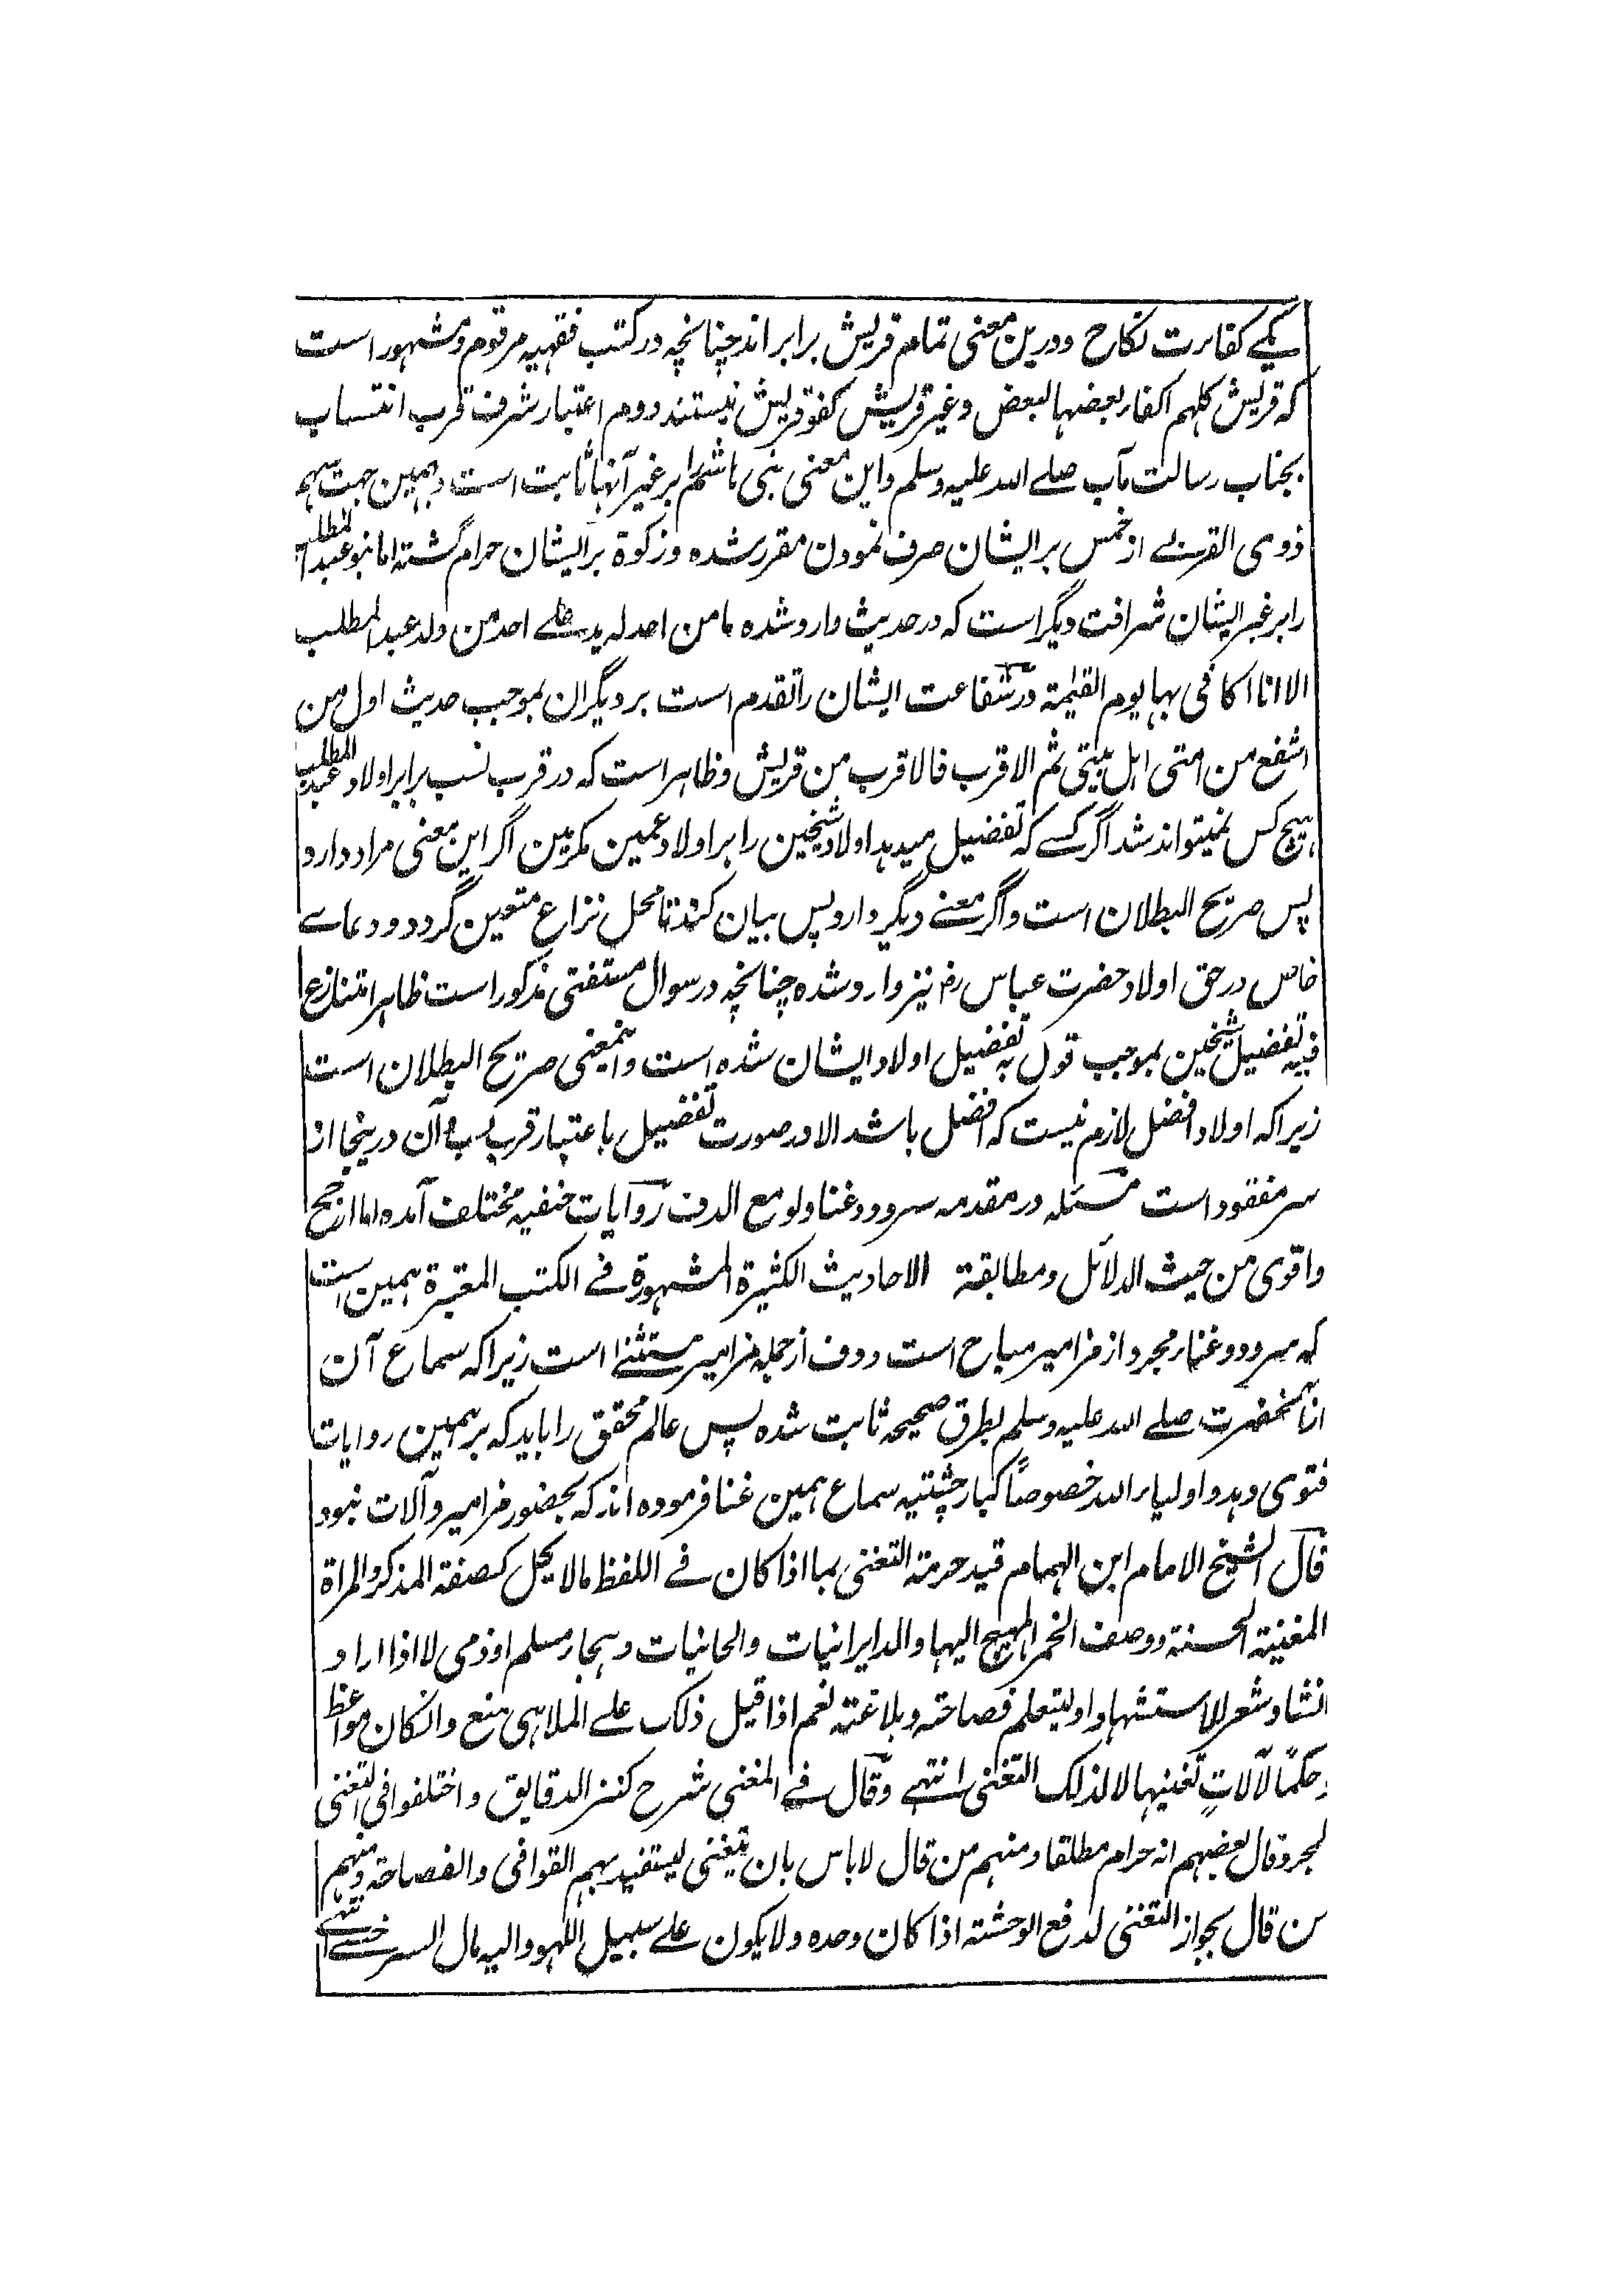 یکے کفارت نکاح و درین معنی تمام قریش برابر اند چنانچہ در کتب فقہیہ مرقوم و مشہور است
کہ قریش کلہم اکفار بعضہا لبعض و غیر قریش کفو قریش نیستند دوم اعتبار شرف قرب انتساب
بجناب رسالت مآب صلے اللہ علیہ وسلم و این معنی بنی ہاشم را بر غیر آنہا ثابت است و بہمین جہت سہم
ذوی القربے از خمس بر ایشان صرف نمودن مقرر شدہ و زکوۃ بر ایشان حرام گشتہ اما بنو عبد المطلب
را بر غیر ایشان شرافت دیگر است کہ در حدیث وارد شدہ ما من احد لہ ید علے احد من ولد عبد المطلب
الا انا اکافی بہا یوم القیٰمۃ در شفاعت ایشان را تقدم است بر دیگران بموجب حدیث اول من
اشفع من امتی اہل بیتی ثم الاقرب فالاقرب من قریش و ظاہر است کہ در قرب نسب برابر اولاد عبد المطلب
ہیچ کس نمیتواند شد اگر کسے کہ تفضیل میدہد اولاد شیخین را بر اولاد عمین مکرمین اگر این معنی مراد دارد
پس صریح البطلان است و اگر معنے دیگر دارد پس بیان کند تا محل نزاع متعین گردد و دعاے
خاص در حق اولاد حضرت عباس رض نیز وارد شدہ چنانچہ در سوال مستفتی مذکور است ظاہرا متنازع
فیہ تفضیل شیخین بموجب قول بہ تفضیل اولاد ایشان شدہ است و اینمعنی صریح البطلان است
زیراکہ اولاد افضل لازم نیست کہ افضل باشد الا در صورت تفضیل باعتبار قرب نسب و آن درینجا از
سر مفقود است مسئلہ در مقدمہ سرود و غنا ولو مع الدف روایات حنفیہ مختلف آمدہ اما ارجح
و اقوی من حیث الدلائل و مطابقۃ الاحادیث الکثیرۃ المشہورۃ فے الکتب المعتبرۃ ہمین است
کہ سرود و غنار مجرد از مزامیر مباح است و دف از جملہ مزامیر مستثنے است زیراکہ سماع آن
از آنحضرت صلے اللہ علیہ وسلم بطرق صحیحہ ثابت شدہ پس عالم محقق را باید کہ بر ہمین روایات
فتوی دہد و اولیاء اللہ خصوصاً کبار چشتیہ سماع ہمین غنا فرمودہ اند کہ بحضور مزامیر و آلات نبود
قال الشیخ الامام ابن الہمام قید حرمۃ التغنی بما اذا کان فے اللفظ مالا یحل کصفۃ المذکر والمراۃ
المغنیۃ الحسنۃ و وصف الخمر المہیج الیہا والدایرانیات والحانیات و ہجاء مسلم او ذمی لا اذا اراد
انشاد شعر للاستشہاد او لیتعلم فصاحتہ و بلاغتہ نعم اذا قیل ذلک علے الملاہی منع و انکان مواعظ
و حکمًا لآلاتٍ تغنیہا لا لذلک التغنی انتہے و قال فے المغنی شرح کنز الدقایق و اختلفوا فی التغنی
لمجرد قال بعضہم انہ حرام مطلقا و منہم من قال لا باس بان یتغنی لیستفید بہم القوافی والفصاحۃ و منہم
من قال بجواز التغنی لدفع الوحشتہ اذا کان وحدہ ولا یکون علے سبیل اللہو والیہ مال السرخسے انتہے